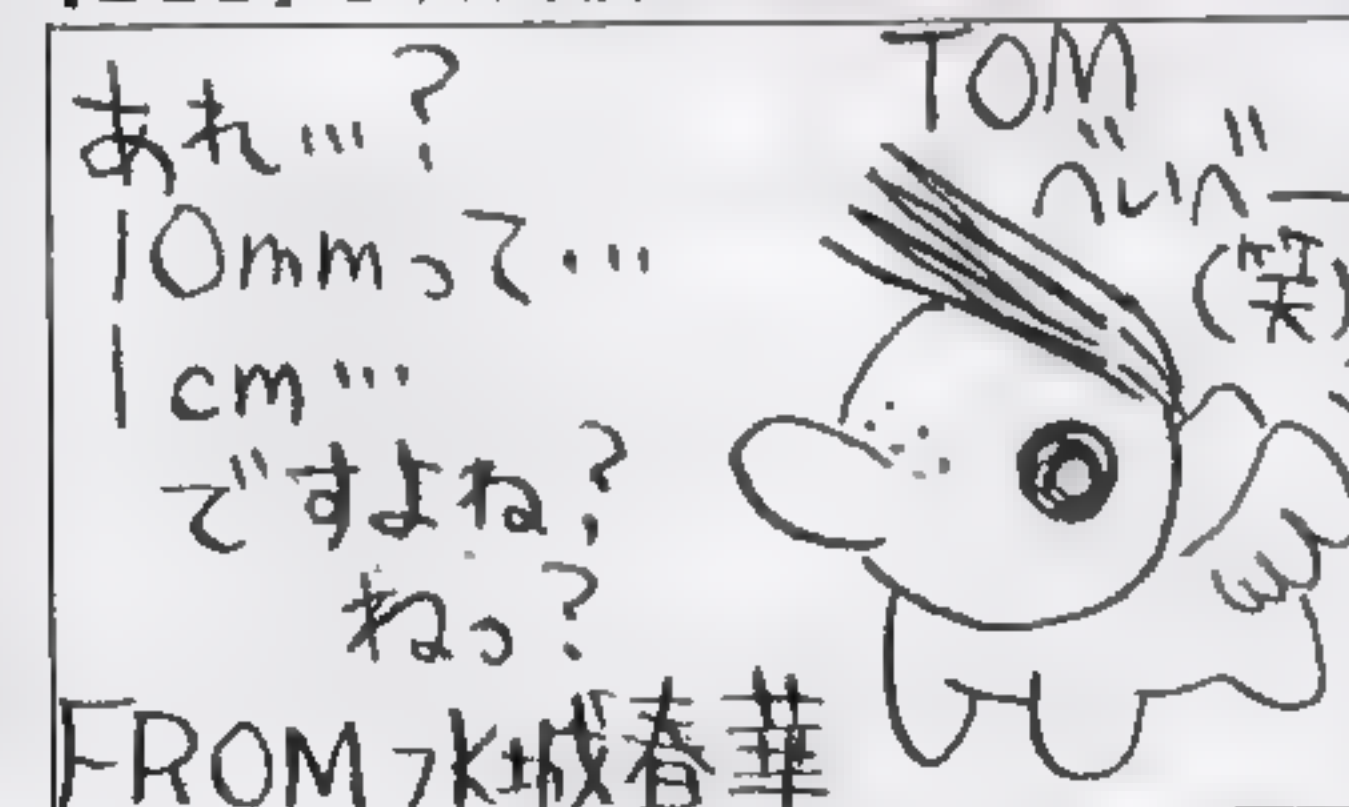 あれ…?
10mmって…
1cm…
ですよね?
ねっ?
FROM水城春華
TOM
ベレベー
(笑)